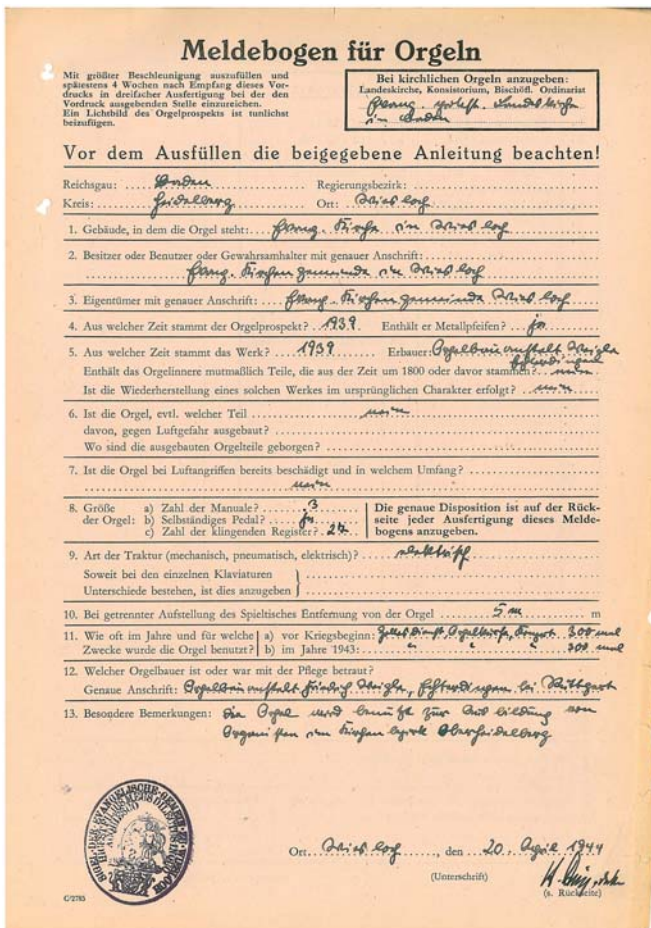 Meldebogen für Orgeln
Mit größter Beschleunigung auszufüllen und
spätestens 4 Wochen nach Empfang dieses Vor-
drucks in dreifacher Ausfertigung bei der den
Vordruck ausgebenden Stelle einzureichen.
Ein Lichtbild des Orgelprospekts ist tunlichst
beizufügen.
Bei kirchlichen Orgeln anzugeben:
Landeskirche, Konsistorium, Bischöfl. Ordinariat
Evang. protest. Landeskirche
in Baden
Vor dem Ausfüllen die beigegebene Anleitung beachten!
Reichsgau: Baden Regierungsbezirk:
Kreis: Heidelberg Ort: Wiesloch
1. Gebäude, in dem die Orgel steht: Evang. Kirche in Wiesloch
2. Besitzer oder Benutzer oder Gewahrsamhalter mit genauer Anschrift:
Evang. Kirchengemeinde in Wiesloch
3. Eigentümer mit genauer Anschrift: Evang. Kirchengemeinde Wiesloch
4. Aus welcher Zeit stammt der Orgelprospekt? 1939 Enthält er Metallpfeifen? ja
5. Aus welcher Zeit stammt das Werk? 1939 Erbauer: Orgelbauanstalt Weigle
Echterdingen
Enthält das Orgelinnere mutmaßlich Teile, die aus der Zeit um 1800 oder davor stammen? nein
Ist die Wiederherstellung eines solchen Werkes im ursprünglichen Charakter erfolgt? nein
6. Ist die Orgel, evtl. welcher Teil nein
davon, gegen Luftgefahr ausgebaut?
Wo sind die ausgebauten Orgelteile geborgen?
7. Ist die Orgel bei Luftangriffen bereits beschädigt und in welchem Umfang?
nein
8. Größe a) Zahl der Manuale? 3
der Orgel: b) Selbständiges Pedal? ja
c) Zahl der klingenden Register? 27
Die genaue Disposition ist auf der Rück-
seite jeder Ausfertigung dieses Melde-
bogens anzugeben.
9. Art der Traktur (mechanisch, pneumatisch, elektrisch)? elektrisch
Soweit bei den einzelnen Klaviaturen
Unterschiede bestehen, ist dies anzugeben
10. Bei getrennter Aufstellung des Spieltisches Entfernung von der Orgel 5 m m
11. Wie oft im Jahre und für welche a) vor Kriegsbeginn: Gottesdienst, Konzert 300 mal
Zwecke wurde die Orgel benutzt? b) im Jahre 1943: " " " 300 mal
12. Welcher Orgelbauer ist oder war mit der Pflege betraut?
Genaue Anschrift: Orgelbauanstalt Friedrich Weigle, Echterdingen bei Stuttgart
13. Besondere Bemerkungen: Die Orgel wird benützt zur Ausbildung von
Organisten im Kirchenbezirk Oberheidelberg
Ort Wiesloch, den 20. April 1944
(Unterschrift)
(s. Rückseite)
C/2785